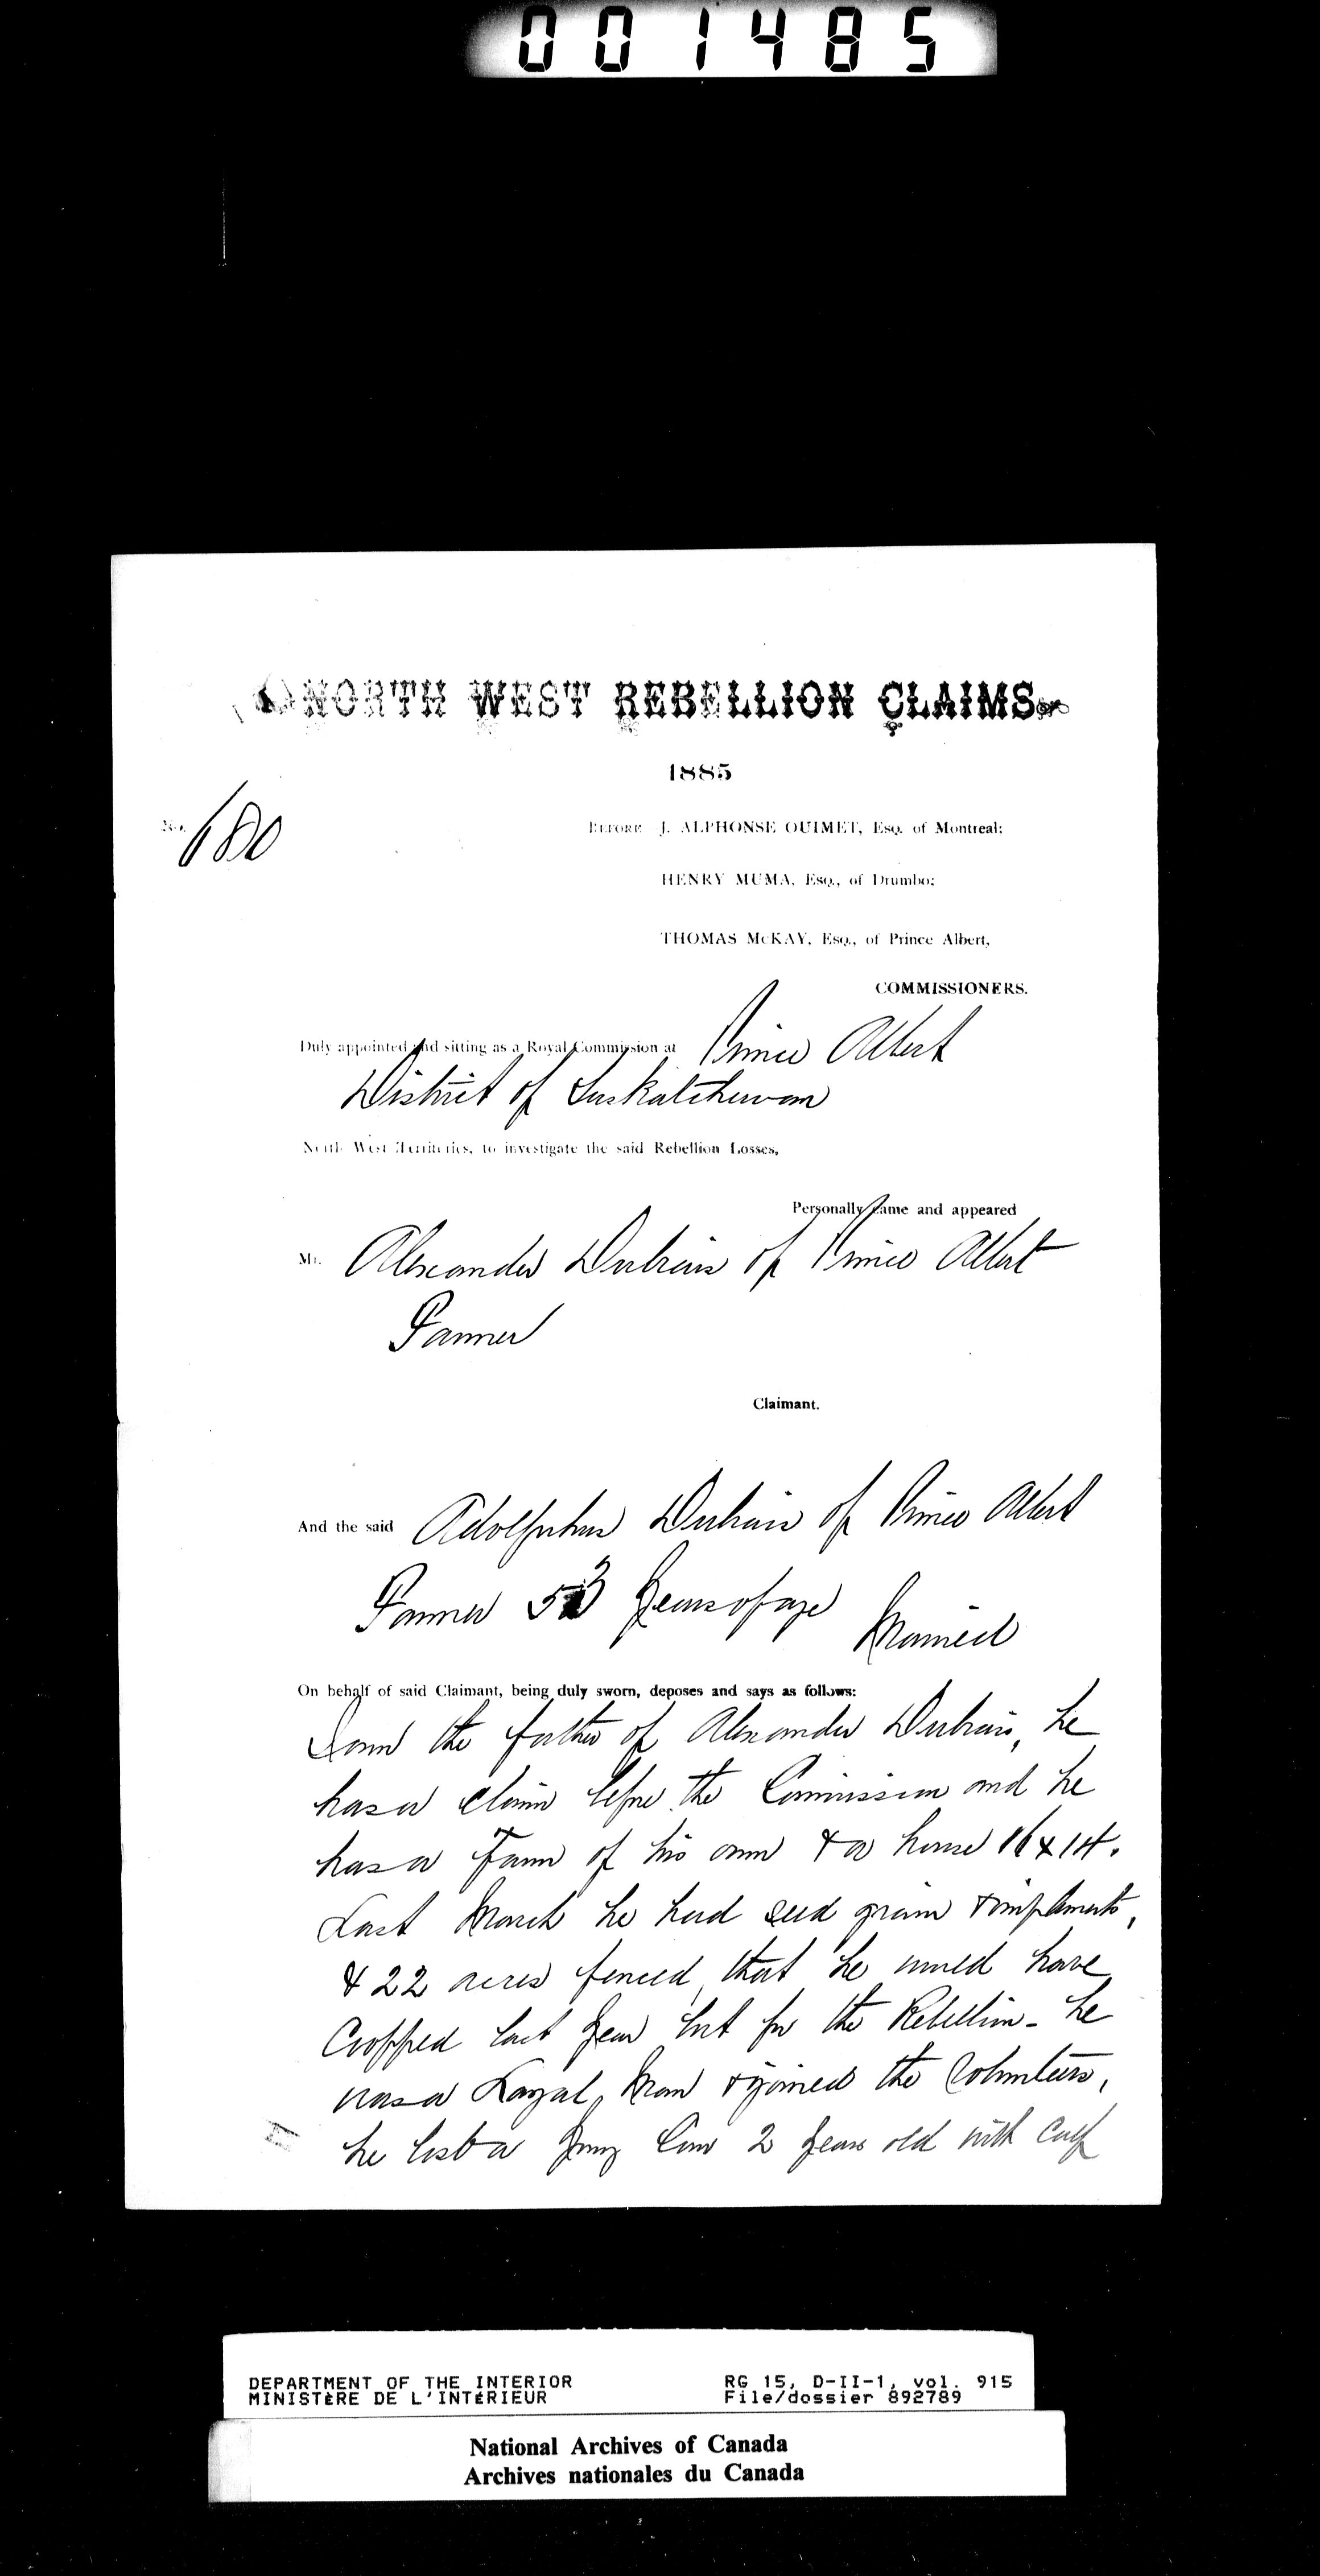 001485
NORTH WEST REBELLION CLAIMS
1885
No. 680
BEFORE J. ALPHONSE OUIMET, Esq. of Montreal:
HENRY MUMA, Esq., of Drumbo:
THOMAS McKAY, Esq., of Prince Albert,
COMMISSIONERS.
Duly appointed and sitting as a Royal Commission at Prince Albert
District of Saskatchewan
North West Territories, to investigate the said Rebellion Losses,
Personally came and appeared
Mr. Alexander of Prince Albert
Farmer
Claimant.
And the said Adolphus of Prince Albert
Farmer 53 years of age Married
On behalf of said Claimant, being duly sworn, deposes and says as follows:
I am the father of Alexander he
has a claim before the Commission and he
has a Farm of his own & a house 16 x 14.
Last March he had seed grain & implements,
& 22 acres fenced, that he would have
cropped last year but for the Rebellion - he
was a Loyal man & joined the Volunteers,
he lost a young Cow 2 years old with calf
DEPARTMENT OF THE INTERIOR
MINISTÈRE DE L'INTÉRIEUR
RG 15, D-II-1, vol. 915
File/dossier 892789
National Archives of Canada
Archives nationales du Canada